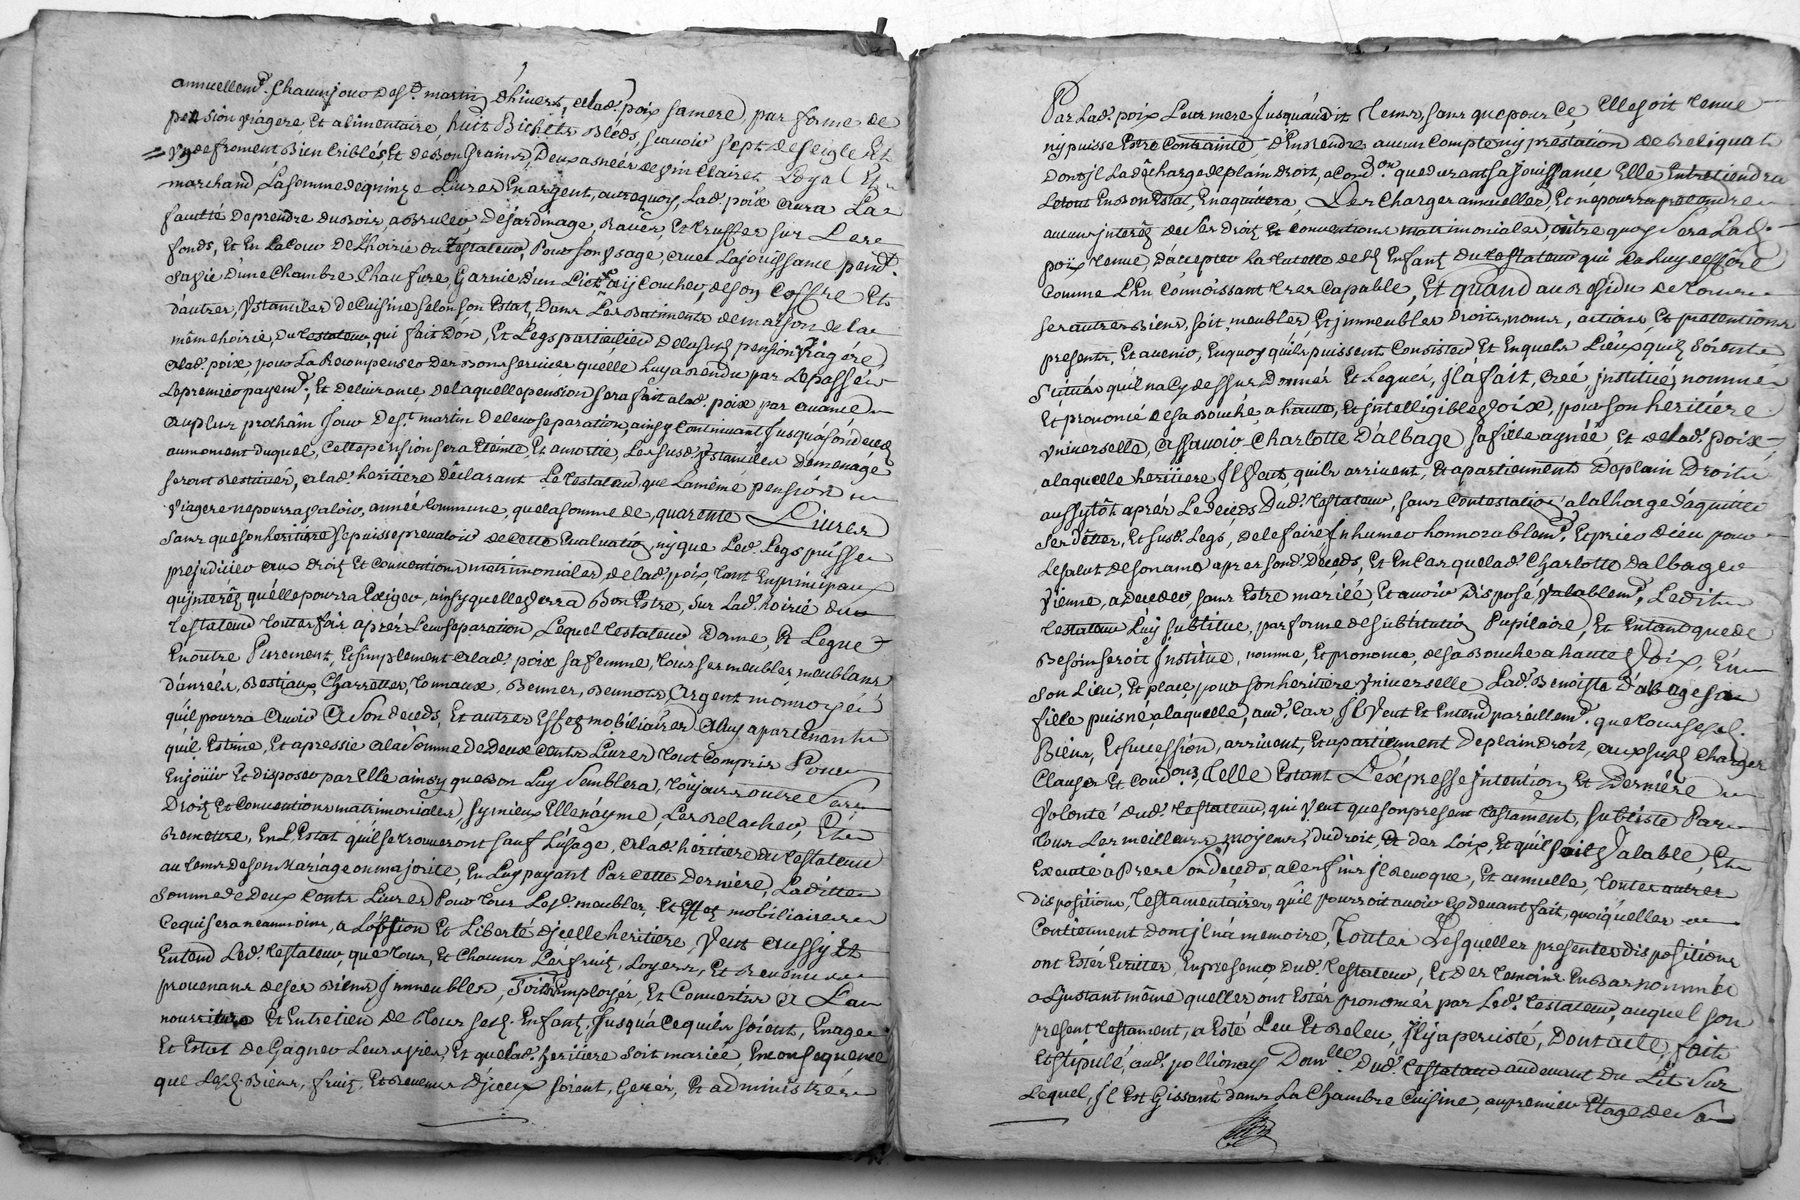 annuellemt. chacun jour de St. martin d'hiver, a lad. poix sa mere, par forme de
pension viagere, et alimentaire, huit Bichets Bleds, scavoir sept de seigle et
un de froment Bien criblés et de Bon Grains, Deux asnées de vin clairet Loyal et
marchand, La somme de quinze Livres En argent, outre quoy, Lad. poix aura La
faculté de prendre du Bois, a Bruler, de jardinage, Raves, et truffes sur Les
fonds, et En La cour de L'hoirie du Testateur, Pour son usage, avec La jouissance pendt.
sa vie d'une chambre chaufure, Garnie d'un Lict a y coucher, de son coffre et
d'autres, ustanciles de Cuisine selon son Estat, Dans Les Batiments de maison de la
même hoirie, du testateur, qui fait don, Et Legs particulier de la susd. pension viagere
a lad. poix, pour La Recompenser des Bons services qu'elle Luy a rendu par Le passé,
Le premier payemt. Et delivrance de laquelle pension sera fait a lad. poix par avance
au plus prochain Jour de St. martin de leur separation, ainsy continuant Jusqu'a son deces
au moment duquel, Cette pension sera Eteinte Et amortie, Les susd. ustanciles de menage
seront Restitués, a lad. heritiere Declarant Le testateur, que La même pension
viagere ne pourra valoir, année Commune, que la somme de, quarente Livres
sans que son heritiere se puisse prevaloir de cette Evaluation, ny que Led. Legs puisse
prejudicier aux droits Et conventions matrimoniales de lad. poix, tant En principaux
qu'interêts qu'elle pourra Exiger, ainsy qu'elle verra Bon Estre, sur Lad. hoirie du
testateur toutes fois aprés Leur separation, Lequel testateur Donne, Et Legue
En outre Purement, Et simplement a lad. poix sa femme, tous ses meubles, meublans
danrées, Bestiaux, Charrettes, tonnaux, Bennes, Bennots, Argent monnoyé
qu'il pourra avoir a son deceds, Et autres Effets mobiliaires a luy apartenants
qu'il Estime, Et apressie a la somme de Deux cents Livres tout compris Pour
En joüir Et disposer par Elle ainsy que Bon Luy semblera, toujours outre ses
Droits Et conventions matrimoniales, sy mieux Elle n'ayme, Les Relacher, Et
Remettre, En L'Estat qu'ils se trouveront sauf L'usage, a lad. heritiere du testateur
au tems de son Mariage ou majorité, En Luy payant Par cette Derniere, Laditte
somme de Deux Cents Livres Pour tous Lesd. meubles, Et Effets mobiliaires
ce qui sera neammoins, a L'option Et Liberté d'jcelle heritiere, Veut aussy Et
Entend Led. testateur, que tous, Et Chacuns Les fruits, Loyers, Et Revenus
provenans de ses Biens Immeubles, soient Employés, Et Convertis a La
nourriture Et Entretien de tous sesd. Enfants, Jusqu'a ce quils soient, En age
Et Estat de Gagner Leurs vies, Et que lad. heritiere soit mariée, En consequence
que Lesd. Biens, fruits, Et Revenus d'jceux soient, Gerés, Et administrés
Par Lad. poix Leur mere Jusqu'audit tems, sans que pour Ce, Elle soit tenue
ny puisse Estre Contrainte, d'En Rendre aucun Compte ny prestation de Reliquat
dont jl La décharge de plain droit, a condon. que durant sa jouissance Elle Entretiendra
Le tout En Bon Estat, En aquittera, Les Charges annuelles, Et ne pourra pretendre
aucuns interêts de ses Droits Et conventions matrimoniales, outre quoy sera Lad.
poix tenue, d'accepter La tutelle desd. Enfants du testateur qui La Luy deffére
comme L'En Connoissant tres Capable, Et quand au Residu de tous
ses autres Biens, soit, meubles, Et jmmeubles Droits, noms, actions Et pretentions
presents, Et avenir, En quoy qu'ils puissent Consister, Et En quels Lieux quils soient
scitués qu'il n'a cy dessus Donnés Et Legués, Jl a fait, creé, jnstitué, nommé
Et prononcé de sa Bouche, a haute, Et jntelligible voix, pour son heritiére
universelle, a scavoir, Charlotte D'albage sa fille agnée Et de lad. poix
a laquelle heritiere Jl veut, quils arrivent, Et apartiennent De plain Droit
aussytôt aprés Le deceds Dud. testateur, sans contestation, a la charge d'aquitter
ses dettes, Et susd. Legs, de le faire Inhumer honnorablemt. Et prier dieu pour
Le salut de son ame aprés sond. Deceds, Et En Cas que lad. Charlotte d'albage
vienne, a deceder, sans Estre mariée, Et avoir Disposé valablemt., Ledit
testateur Luy subtitue, par forme de subtitution Pupilaire, Et En tant que de
Besoin seroit Institue, nomme, Et prononce, de sa Bouche a haute voix, En
son Lieu, Et place, pour son heritiére universelle Lad. Benoiste d'albage sa
fille puisnée, a laquelle, aud. Cas Jl veut Et Entend pareillemt. que tous sesd.
Biens, Et succession, arrivent, Et apartiennent de plain Droit, aux susd. Charges
Clauses Et condons., telle Estant L'expresse jntention, Et Derniére
Volonté dud. testateur, qui veut que son present testament, subsiste Par
tous Les meilleurs moyens, du droit, Et des Loix, Et qu'il soit valable, Et
Executé aprés son deceds, a ces fins jl Revoque, Et annulle, toutes autres
Dispositions, testamentaires, qu'il pourroit avoir cy devant fait, quoiqu'elles
Contiennent dont jl n'a memoire, Toutes Lesquelles presentes dispositions
ont Estés Ecrites, En presence, dud. testateur, Et des temoins En Bas nommés
a L'jnstant même quelles ont Estés prononcés par Led. testateur, auquel son
present testament, a Esté Leu Et Releu, Jl y a percisté, Dont acte, fait
Et stipulé, aud. pollionay Domlle. Dud. testateur au devant du Lit sur
Lequel, Jl Est Gissant dans La Chambre Cuisine, au premier Etage de Sa